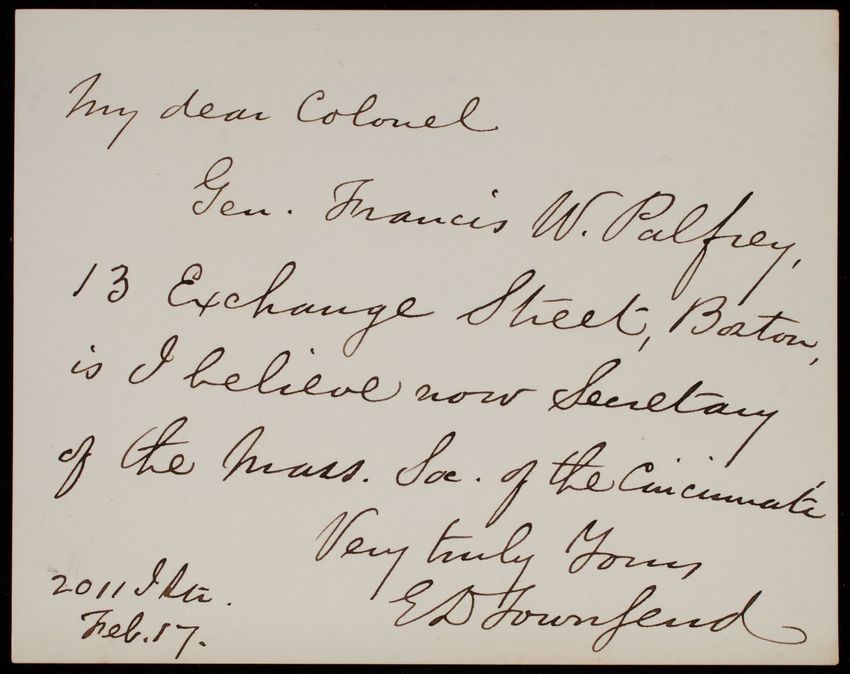 My dear Colonel
Gen. Francis W. Palfrey,
13 Exchange Street, Boston,
is I believe now Secretary
of the Mass. Soc. of the Cincinnati
Very truly Yours
E D Townsend
2011 I Str.
Feb. 17.